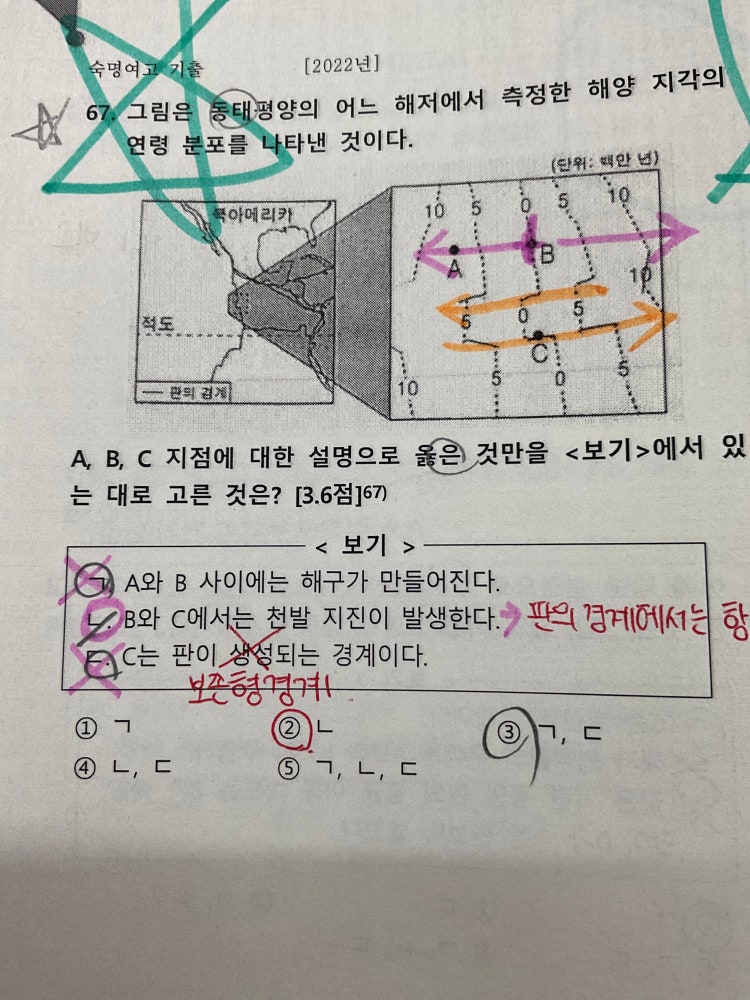 숙명여고 기출 [2022년]
67. 그림은 동태평양의 어느 해저에서 측정한 해양 지각의
연령 분포를 나타낸 것이다.
(단위: 백만 년)
북아메리카
10 5 0 5 10
A B
10
적도
5 0 5
C
판의 경계
10 5 0 5
A, B, C 지점에 대한 설명으로 옳은 것만을 <보기>에서 있
는 대로 고른 것은? [3.6점]67)
< 보기 >
ㄱ. A와 B 사이에는 해구가 만들어진다.
ㄴ. B와 C에서는 천발 지진이 발생한다. → 판의 경계에서는 항
ㄷ. C는 판이 생성되는 경계이다.
보존형경계
① ㄱ ② ㄴ ③ ㄱ, ㄷ
④ ㄴ, ㄷ ⑤ ㄱ, ㄴ, ㄷ